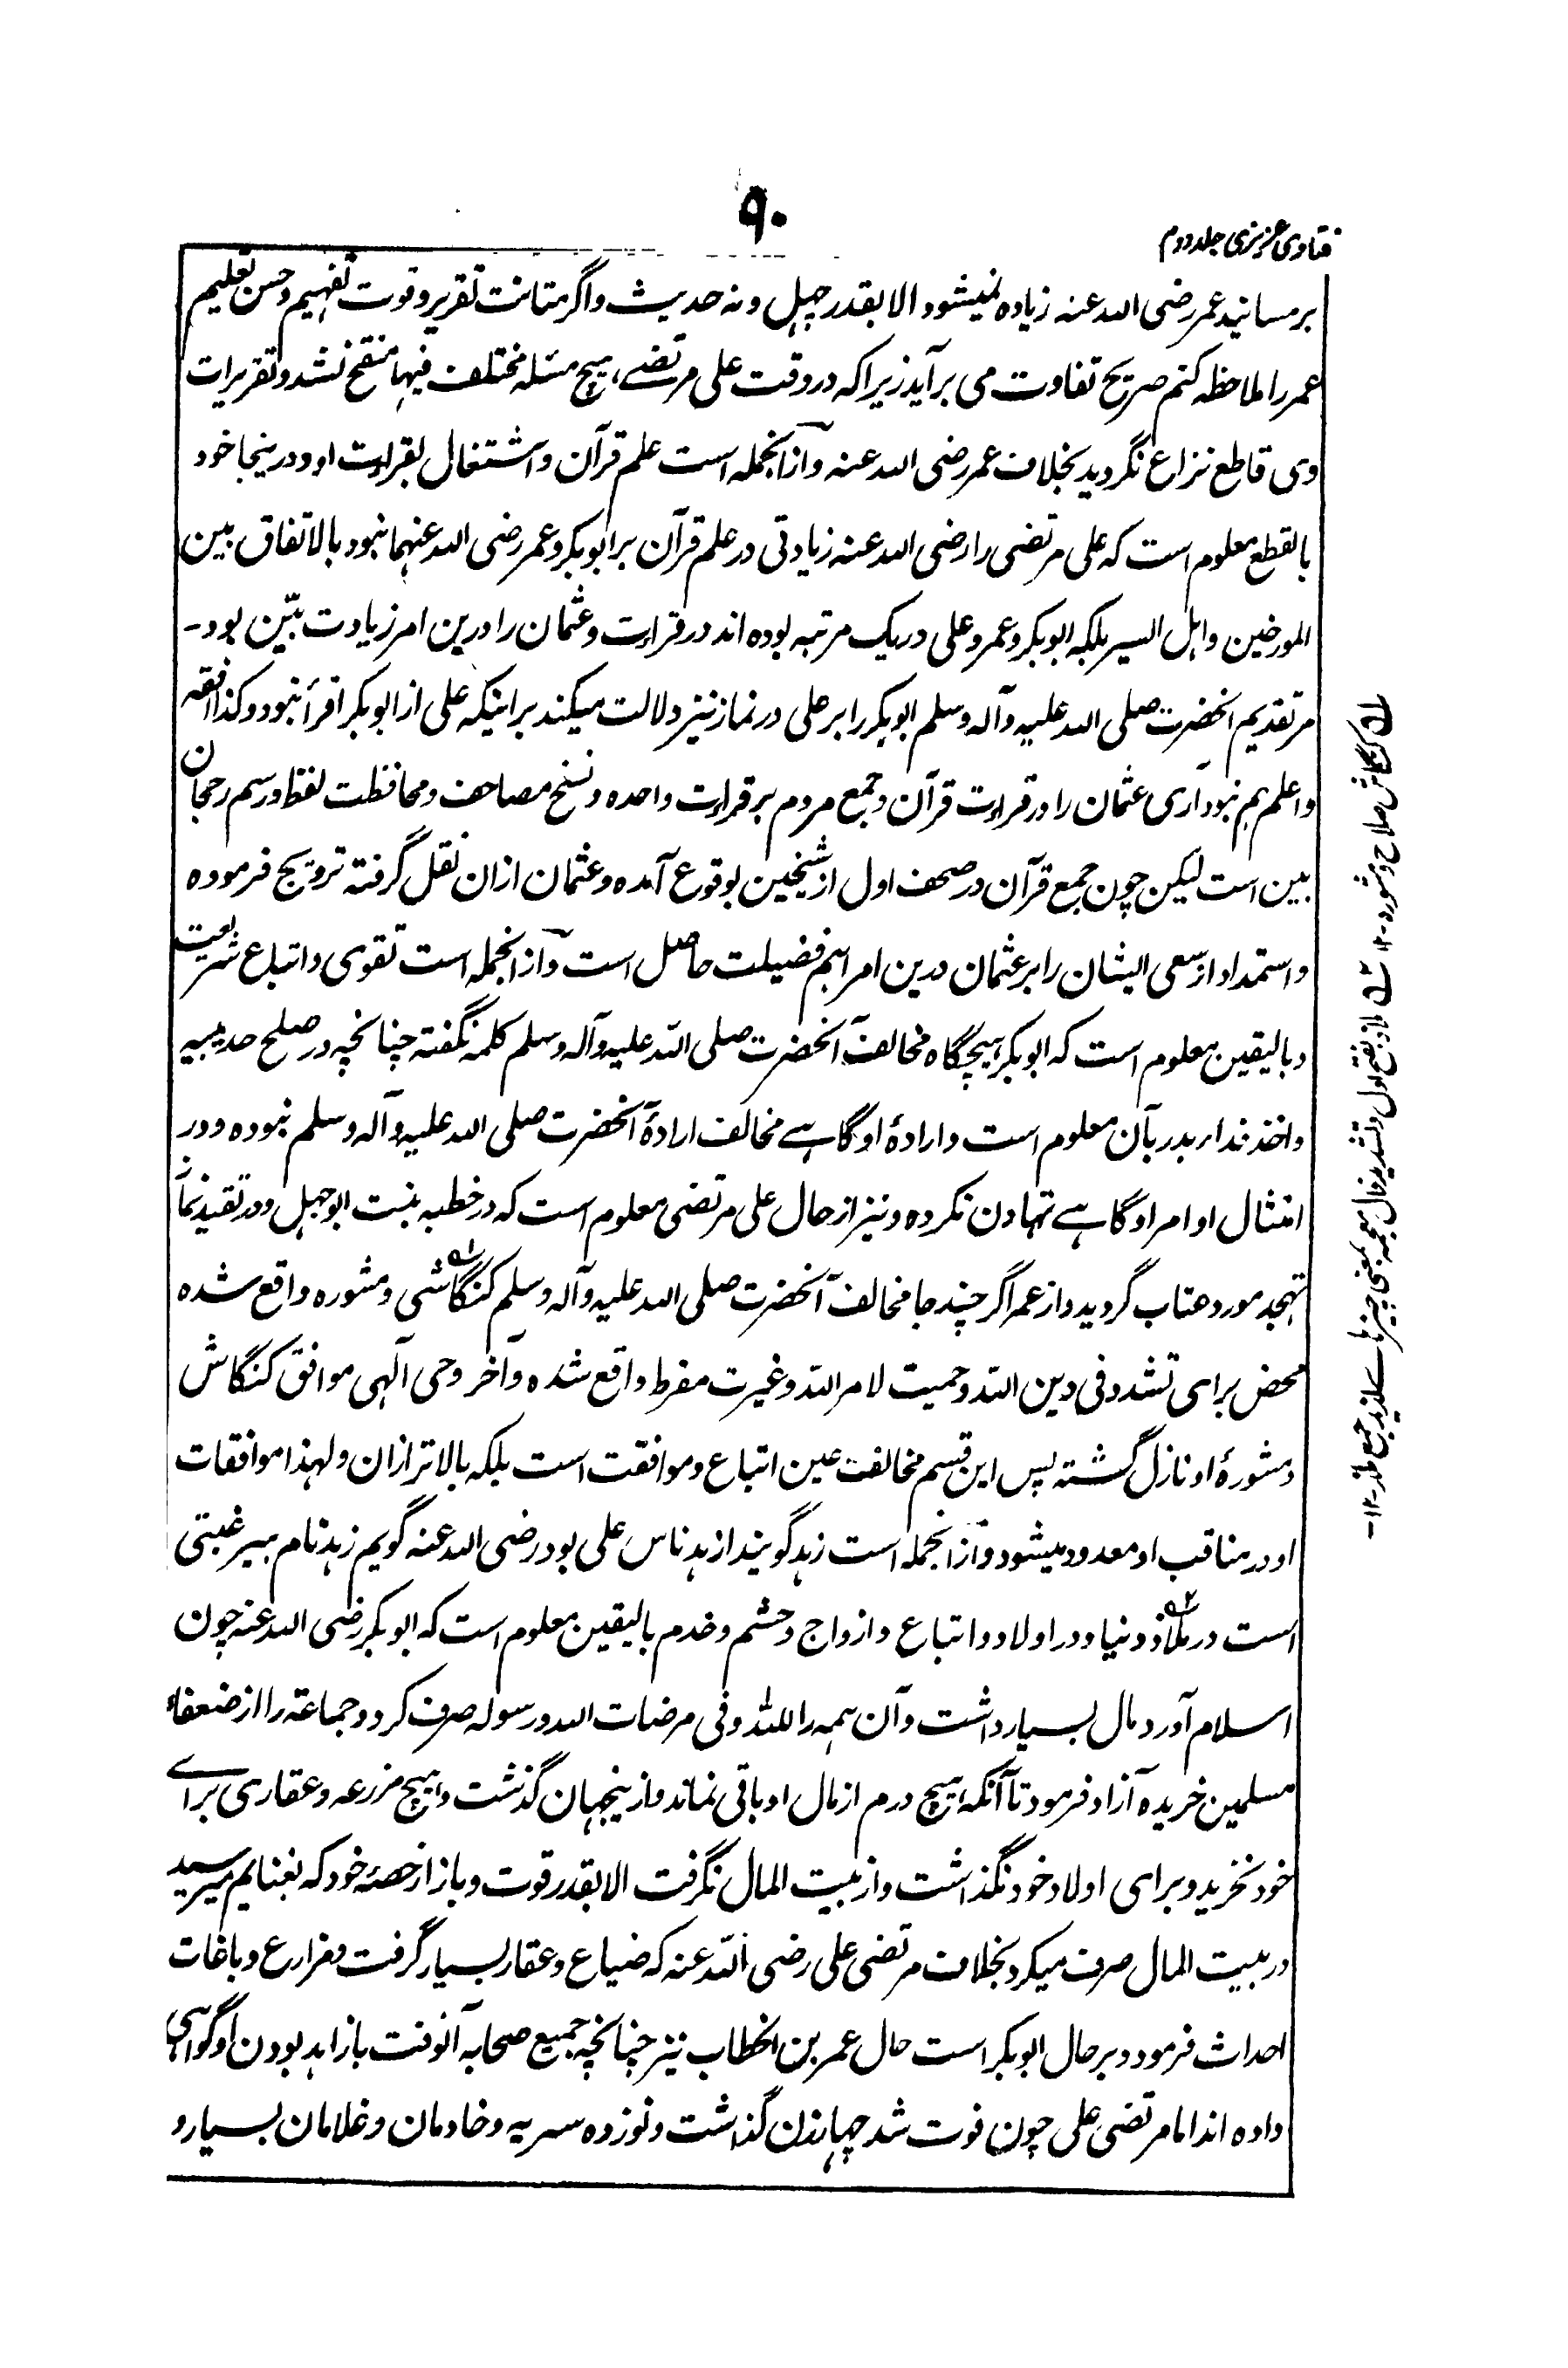 ۹۰
فتاوی عزیزی جلد دوم
بر مسانید عمر رضی الله عنه زیاده نمیشود الا بقدر چهل و نه حدیث و اگر متانت تقریر و قوت تفهیم و حسن تعلیم
عمر را ملاحظه کنم صریح تفاوت می برآید زیرا که در وقت علی مرتضے، هیچ مسئله مختلف فیها منقح نشد و تقریرات
وی قاطع نزاع نگردید بخلاف عمر رضی الله عنه و ازانجمله است علم قرآن و اشتغال بقراءت او و درینجا خود
بالقطع معلوم است که علی مرتضی را رضی الله عنه زیادتی در علم قرآن بر ابوبکر و عمر رضی الله عنهما نبود بالاتفاق بین
المورخین و اهل السیر بلکه ابوبکر و عمر و علی در یک مرتبه بوده اند در قراءت و عثمان را درین امر زیادت بیّن بود۔
مر تقدیم آنحضرت صلی الله علیه وآله وسلم ابوبکر را بر علی در نماز نیز دلالت میکند بر اینکه علی از ابوبکر اقرأ نبود و کذا افقه
و اعلم هم نبود آری عثمان را در قراءت قرآن و جمع مردم بر قراءت واحده و نسخ مصاحف و محافظت لفظ و رسم رجحان
بین است لیکن چون جمع قرآن در صحف اول از شیخین بوقوع آمده و عثمان ازان نقل گرفته ترویج فرموده
و استمداد از سعی ایشان را بر عثمان درین امر هم فضیلت حاصل است و ازانجمله است تقوی و اتباع شریعت
و بالیقین معلوم است که ابوبکر هیچگاه مخالف آنحضرت صلی الله علیه وآله وسلم کلمه نگفته چنانچه در صلح حدیبیه
و اخذ فداء بدر بآن معلوم است و ارادهٔ او گاہے مخالف ارادهٔ آنحضرت صلی الله علیه وآله وسلم نبوده و در
امتثال اوامر او گاہے تهاون نکرده و نیز از حال علی مرتضی معلوم است که در خطبه بنت ابوجهل و در تقید نماز
تهجد مورد عتاب گردید و از عمر اگر چند جا مخالف آنحضرت صلی الله علیه وآله وسلم کنگاشی و مشوره واقع شده
محض برای تشدد فی دین الله و حمیت لامر الله و غیرت مفرط واقع شده و آخر وحی الهی موافق کنگاش
و مشورهٔ او نازل گشته پس این قسم مخالفت عین اتباع و موافقت است بلکه بالاتر ازان و لهذا موافقات
او در مناقب او معدود میشود و ازانجمله است زهد گویند ازهد ناس علی بود رضی الله عنه گویم زهد نام بیرغبتی
است در ملاذ دنیا و در اولاد و اتباع و ازواج و حشم و خدم بالیقین معلوم است که ابوبکر رضی الله عنه چون
اسلام آورد مال بسیار داشت و آن همه را لله و فی مرضات الله و رسوله صرف کرد و جماعة را از ضعفاء
مسلمین خریده آزاد فرمود تا آنکه هیچ درم از مال او باقی نماند و ازینجهان گذشت و هیچ مزرعه و عقاری برای
خود نخرید و برای اولاد خود نگذاشت و از بیت المال نگرفت الا بقدر قوت و باز از حصهٔ خود که بغنایم میرسید
در بیت المال صرف میکرد بخلاف مرتضی علی رضی الله عنه که ضیاع و عقار بسیار گرفت و مزارع و باغات
احداث فرمود و بر حال ابوبکر است حال عمر بن الخطاب نیز چنانچه جمیع صحابه آنوقت بازاهد بودن او گواهی
داده اند اما مرتضی علی چون فوت شد چهار زن گذاشت و نوزده سریه و خادمان و غلامان بسیار و
کنگاش صلاح و مشوره ۱۲
ملاذ بفتح اول و تشدید ذال معجمه بمعنی چیزهاے لذیذ جمع ملذ ۱۲